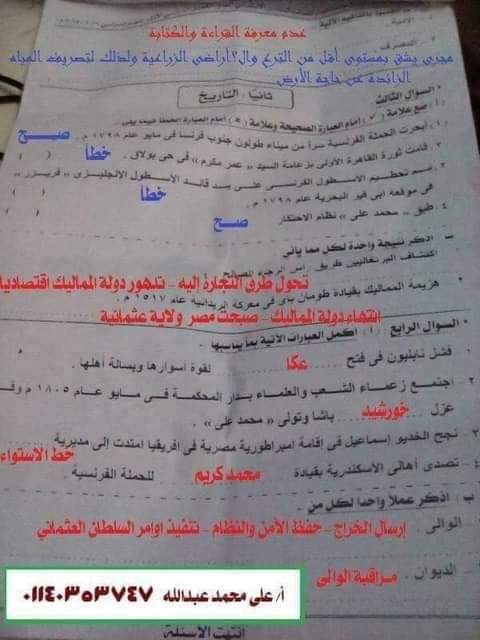 ١ - الأمية
عدم معرفة القراءة والكتابة
٢ - المصرف
مجرى يشق بمستوى أقل من الترع وال؟أراضى الزراعية ولذلك لتصريف المياه
الزائدة عن حاجة الأرض
ثانيًا : التاريخ
• السؤال الثالث
أ) ضع علامة (✓) أمام العبارة الصحيحة وعلامة (×) أمام العبارة الخطأ فيما يلى.
١) أبحرت الحملة الفرنسية سرًا من ميناء طولون جنوب فرنسا فى مايو عام ١٧٩٨ م. صـــح
٢) قامت ثورة القاهرة الأولى بزعامة السيد « عمر مكرم » فى حى بولاق. ( خطأ )
٣) تم تحطيم الأسطول الفرنسى على يد قائد الأسطول الإنجليزى « فريزر »
فى موقعة أبى قير البحرية عام ١٧٩٨ م. ( خطأ )
٤) طبق « محمد على » نظام الاحتكار ( صـــح )
ب - اذكر نتيجة واحدة لكل مما يأتى
اكتشاف البرتغاليين طريق رأس الرجاء الصالح
تحول طرق التجارة إليه - تدهور دولة المماليك اقتصاديا
٢ - هزيمة المماليك بقيادة طومان باى فى معركة الريدانية عام ١٥١٧ م.
انتهاء دولة المماليك - صبحت مصر ولاية عثمانية
• السؤال الرابع : (أ) أكمل العبارات الآتية بما يناسبها.
١ - فشل نابليون فى فتح ... عكا ... لقوة أسوارها وبسالة أهلها.
٢ - اجتمع زعماء الشعب والعلماء بدار المحكمة فى مايو عام ١٨٠٥ م وقرروا
عزل ... خورشيد ... باشا وتولى « محمد على ».
٣ - نجح الخديو إسماعيل فى إقامة امبراطورية مصرية فى أفريقيا امتدت إلى مديرية خط الاستواء
٤ - تصدى أهالى الأسكندرية بقيادة محمد كريم للحملة الفرنسية.
ب : اذكر عملاً واحدًا لكل من
الوالى . إرسال الخراج - حفظ الأمن والنظام - تنفيذ اوامر السلطان العثمانى
الديوان . مراقبة الوالى
أ/ على محمد عبدالله ٠١١٤٠٣٥٣٧٤٧
انتهت الأسئلة